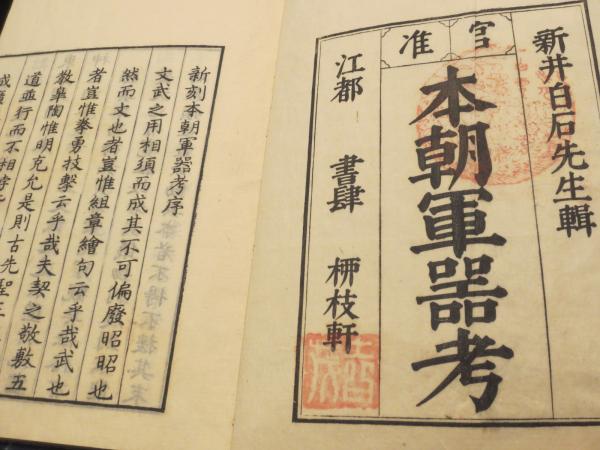 官准
新井白石先生輯
本朝軍器考
江都 書肆 桺枝軒
新刻本朝軍器考序
文武之用相須而成其不可偏廢昭昭也
然而文也者豈惟組章繪句云乎哉武也
者豈惟拳勇技擊云乎哉夫契之敬敷五
教皐陶惟明克允是則古先聖王
道並行而不相悖